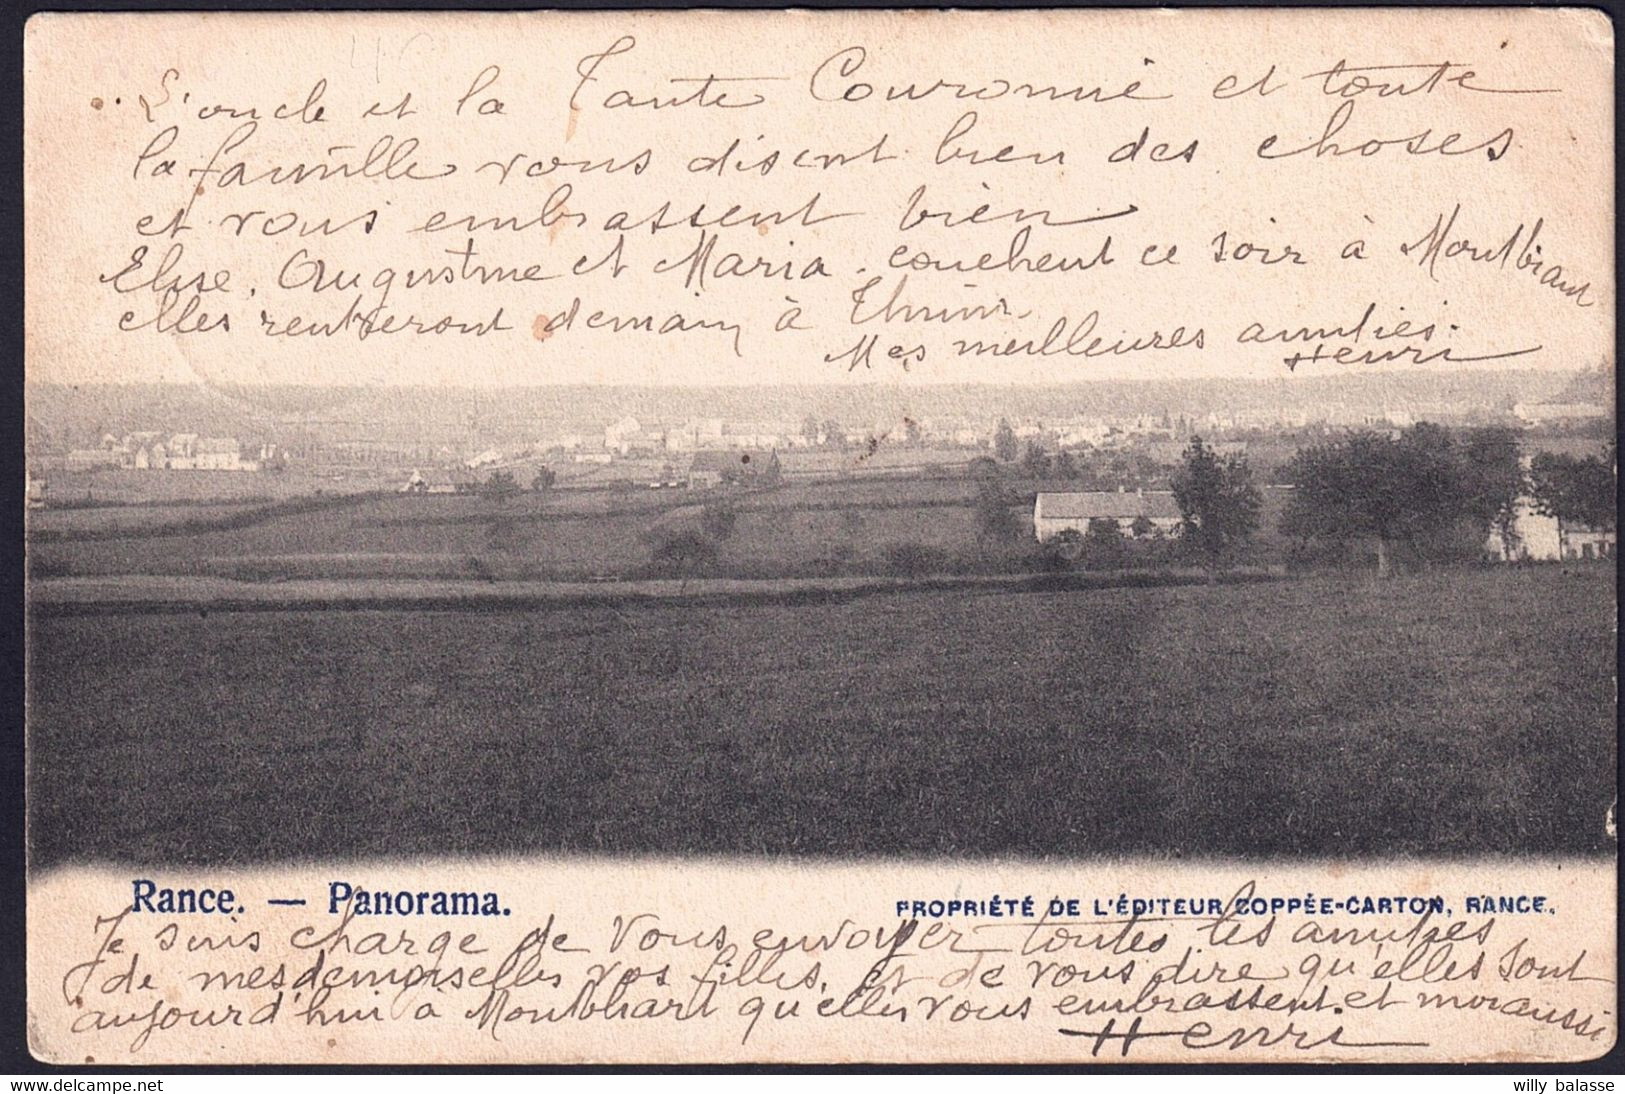 L'oncle et la Tante Couronné et toute
la famille vous disent bien des choses
et vous embrassent bien
Elise, Augustine et Maria couchent ce soir à Montbliart
elles rentreront demain à Thuin.
Mes meilleures amitiés.
Henri
Rance. — Panorama.
PROPRIÉTÉ DE L'ÉDITEUR COPPÉE-CARTON, RANCE.
Je suis charge de vous envoyer toutes les amitiés
de mesdemoiselles vos filles, et de vous dire qu'elles sont
aujourd'hui à Montbliart qu'elles vous embrassent et moi aussi
Henri
delcampe.net
willy balasse